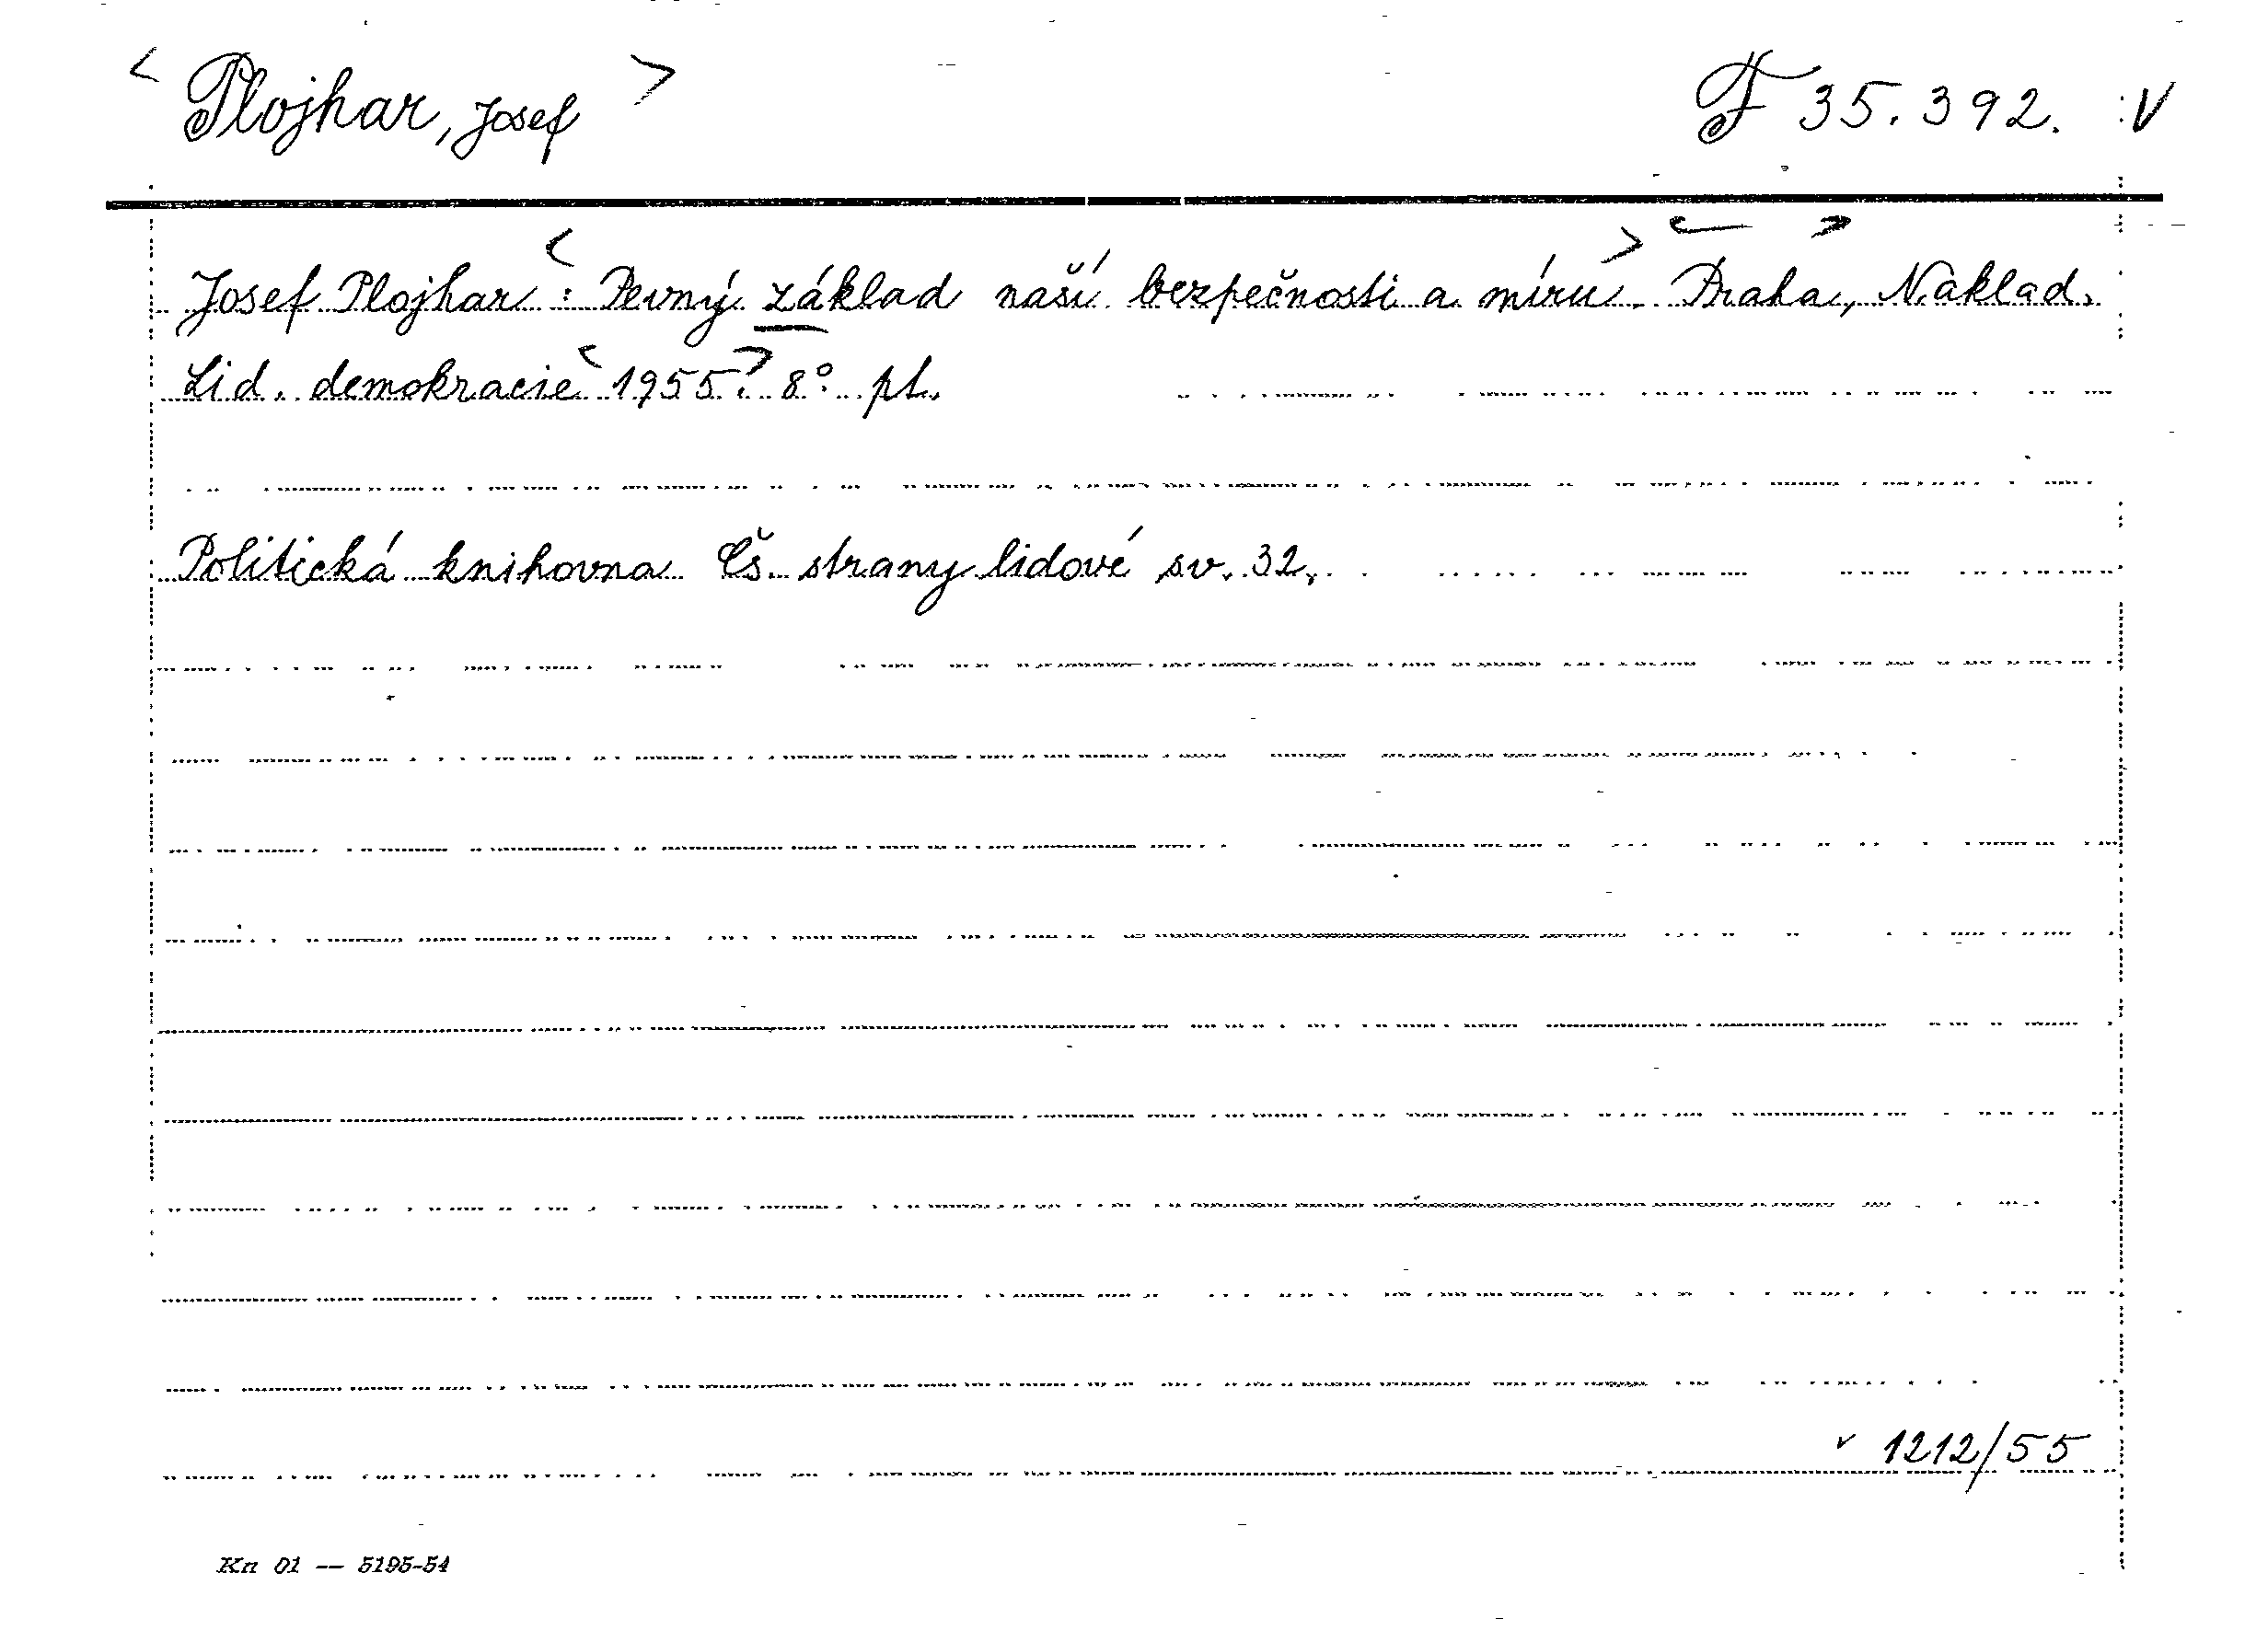 < Plojhar, Josef > F 35.392. :V
Josef Plojhar : < Pevný základ naší bezpečnosti a míru. > < Praha >, Náklad.
Lid. demokracie < 1955. > 8° pl.
Politická knihovna Čs. strany lidové sv. 32.
v 1212/55
Kn 01 — 5195-54